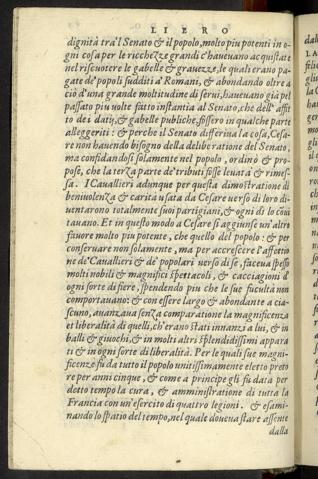 LIBRO
dignità tra'l Senato & il popolo, molto piu potenti in o-
gni cosa per le ricchezze grandi c'haueuano acquistate
nel riscuotere le gabelle & grauezze, le quali erano pa-
gate de' popoli sudditi a' Romani, & abondando oltre a
ciò d'una grande moltitudine di serui, haueuano già pel
passato piu uolte fatto instantia al Senato, che dell' affit
to dei datij, & gabelle publiche, fossero in qualche parte
alleggeriti : & perche il Senato differiua la cosa, Cesa-
re non hauendo bisogno della deliberatione del Senato,
ma confidandosi solamente nel popolo, ordinò & pro-
pose, che la terza parte de' tributi fosse leuata & rimes-
sa. I Cauallieri adunque per questa dimostratione di
beniuolenza & carità usata da Cesare uerso di loro di-
uentarono totalmente suoi partigiani, & ogni di lo cõui
tauano. Et in questo modo a Cesare si aggiunse un'altro
fauore molto piu potente, che quello del popolo : & per
conseruare non solamente, ma per accrescere l'affettio
ne de' Cauallieri & de' popolari uerso di se, faceua spesso
molti nobili & magnifici spettacoli, & cacciagioni d'
ogni sorte di fiere, spendendo piu che le sue facultà non
comportauano: & con essere largo & abondante a cia-
scuno, auanzaua senza comparatione la magnificenza
et liberalità di quelli, ch'erano stati innanzi a lui, & in
balli & giuochi, & in molti altri splendidissimi appara
ti & in ogni sorte di liberalità. Per le quali sue magni-
ficenze fu da tutto il popolo unitissimamente eletto preto
re per anni cinque, & come a principe gli fu data per
detto tempo la cura, & amministratione di tutta la
Francia con un'esercito di quattro legioni. & esami-
nando lo spatio del tempo, nel quale doueua stare assente
dalla